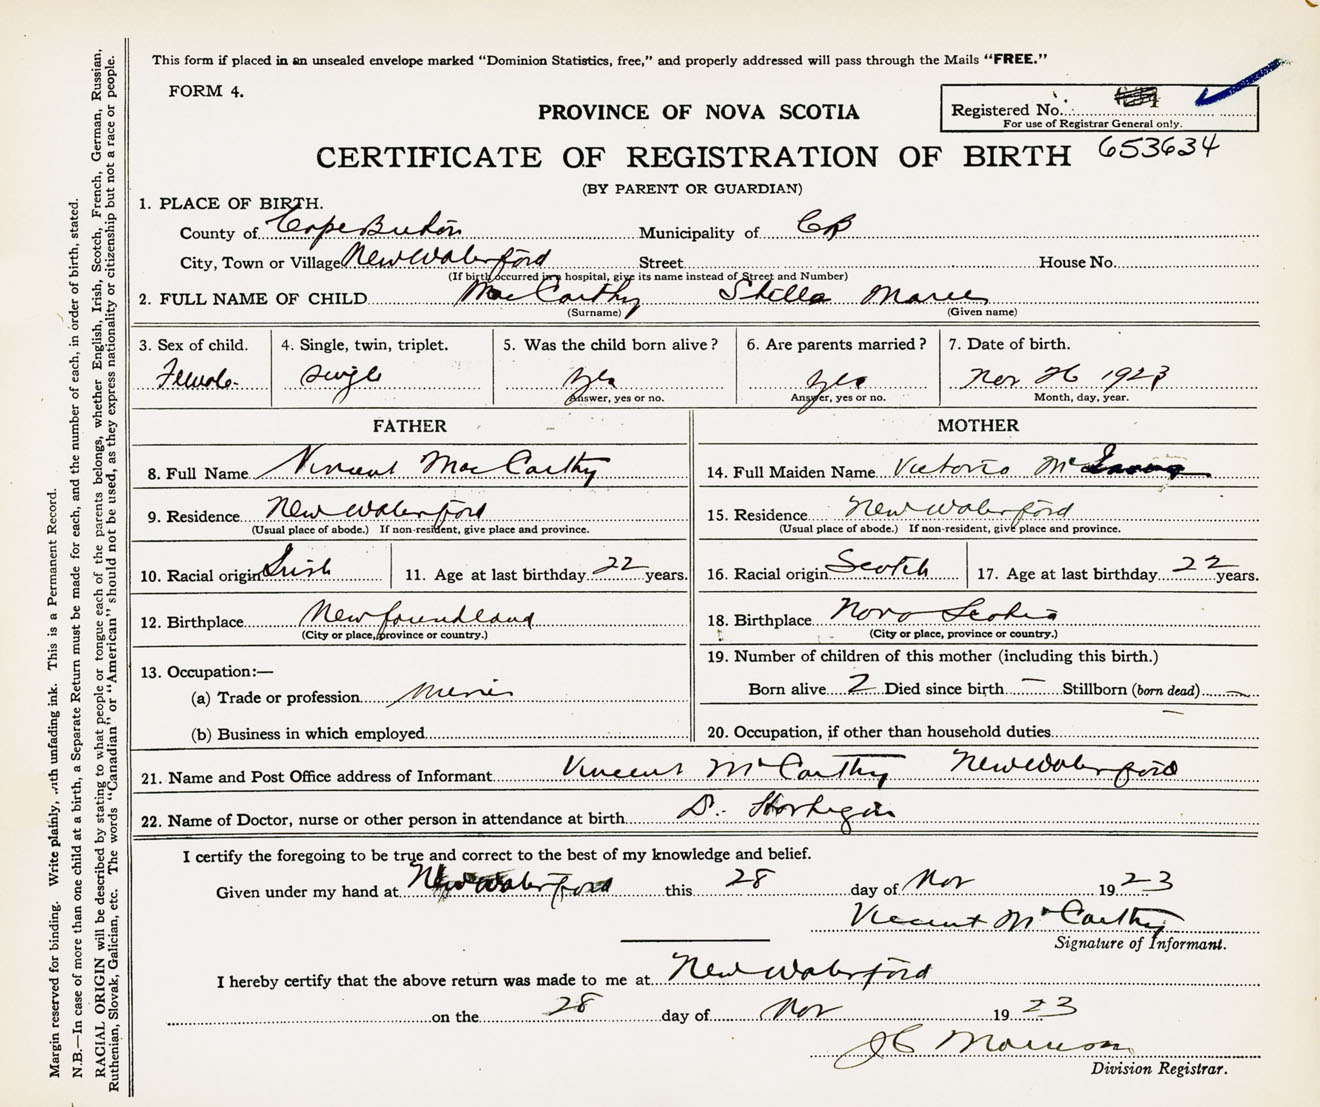 This form if placed in an unsealed envelope marked "Dominion Statistics, free," and properly addressed will pass through the Mails "FREE."
FORM 4.
Registered No.
For use of Registrar General only.
PROVINCE OF NOVA SCOTIA
CERTIFICATE OF REGISTRATION OF BIRTH 653634
(BY PARENT OR GUARDIAN)
1. PLACE OF BIRTH.
County of Cape Breton Municipality of CB
City, Town or Village New Waterford Street House No.
(If birth occurred in a hospital, give its name instead of Street and Number)
2. FULL NAME OF CHILD MacCarthy Stella Marie
(Surname) (Given name)
3. Sex of child. 4. Single, twin, triplet. 5. Was the child born alive? 6. Are parents married? 7. Date of birth.
Female single yes yes Nov 26 1923
Answer, yes or no. Answer, yes or no. Month, day, year.
FATHER MOTHER
8. Full Name Vincent MacCarthy 14. Full Maiden Name Victoria Mc
9. Residence New Waterford 15. Residence New Waterford
(Usual place of abode.) If non-resident, give place and province. (Usual place of abode.) If non-resident, give place and province.
10. Racial origin Irish 11. Age at last birthday 22 years. 16. Racial origin Scotch 17. Age at last birthday 22 years.
12. Birthplace Newfoundland 18. Birthplace Nova Scotia
(City or place, province or country.) (City or place, province or country.)
13. Occupation:— 19. Number of children of this mother (including this birth.)
(a) Trade or profession Miner Born alive 2 Died since birth — Stillborn (born dead) —
(b) Business in which employed 20. Occupation, if other than household duties —
21. Name and Post Office address of Informant Vincent McCarthy New Waterford
22. Name of Doctor, nurse or other person in attendance at birth D.
I certify the foregoing to be true and correct to the best of my knowledge and belief.
Given under my hand at New Waterford this 28 day of Nov 1923
Vincent McCarthy
Signature of Informant.
I hereby certify that the above return was made to me at New Waterford
on the 28 day of Nov 1923
J C Morrison
Division Registrar.
Margin reserved for binding. Write plainly, with unfading ink. This is a Permanent Record.
N.B.—In case of more than one child at a birth, a Separate Return must be made for each, and the number of each, in order of birth, stated.
RACIAL ORIGIN will be described by stating to what people or tongue each of the parents belongs, whether English, Irish, Scotch, French, German, Russian,
Ruthenian, Slovak, Galician, etc. The words "Canadian" or "American" should not be used, as they express nationality or citizenship but not a race or people.